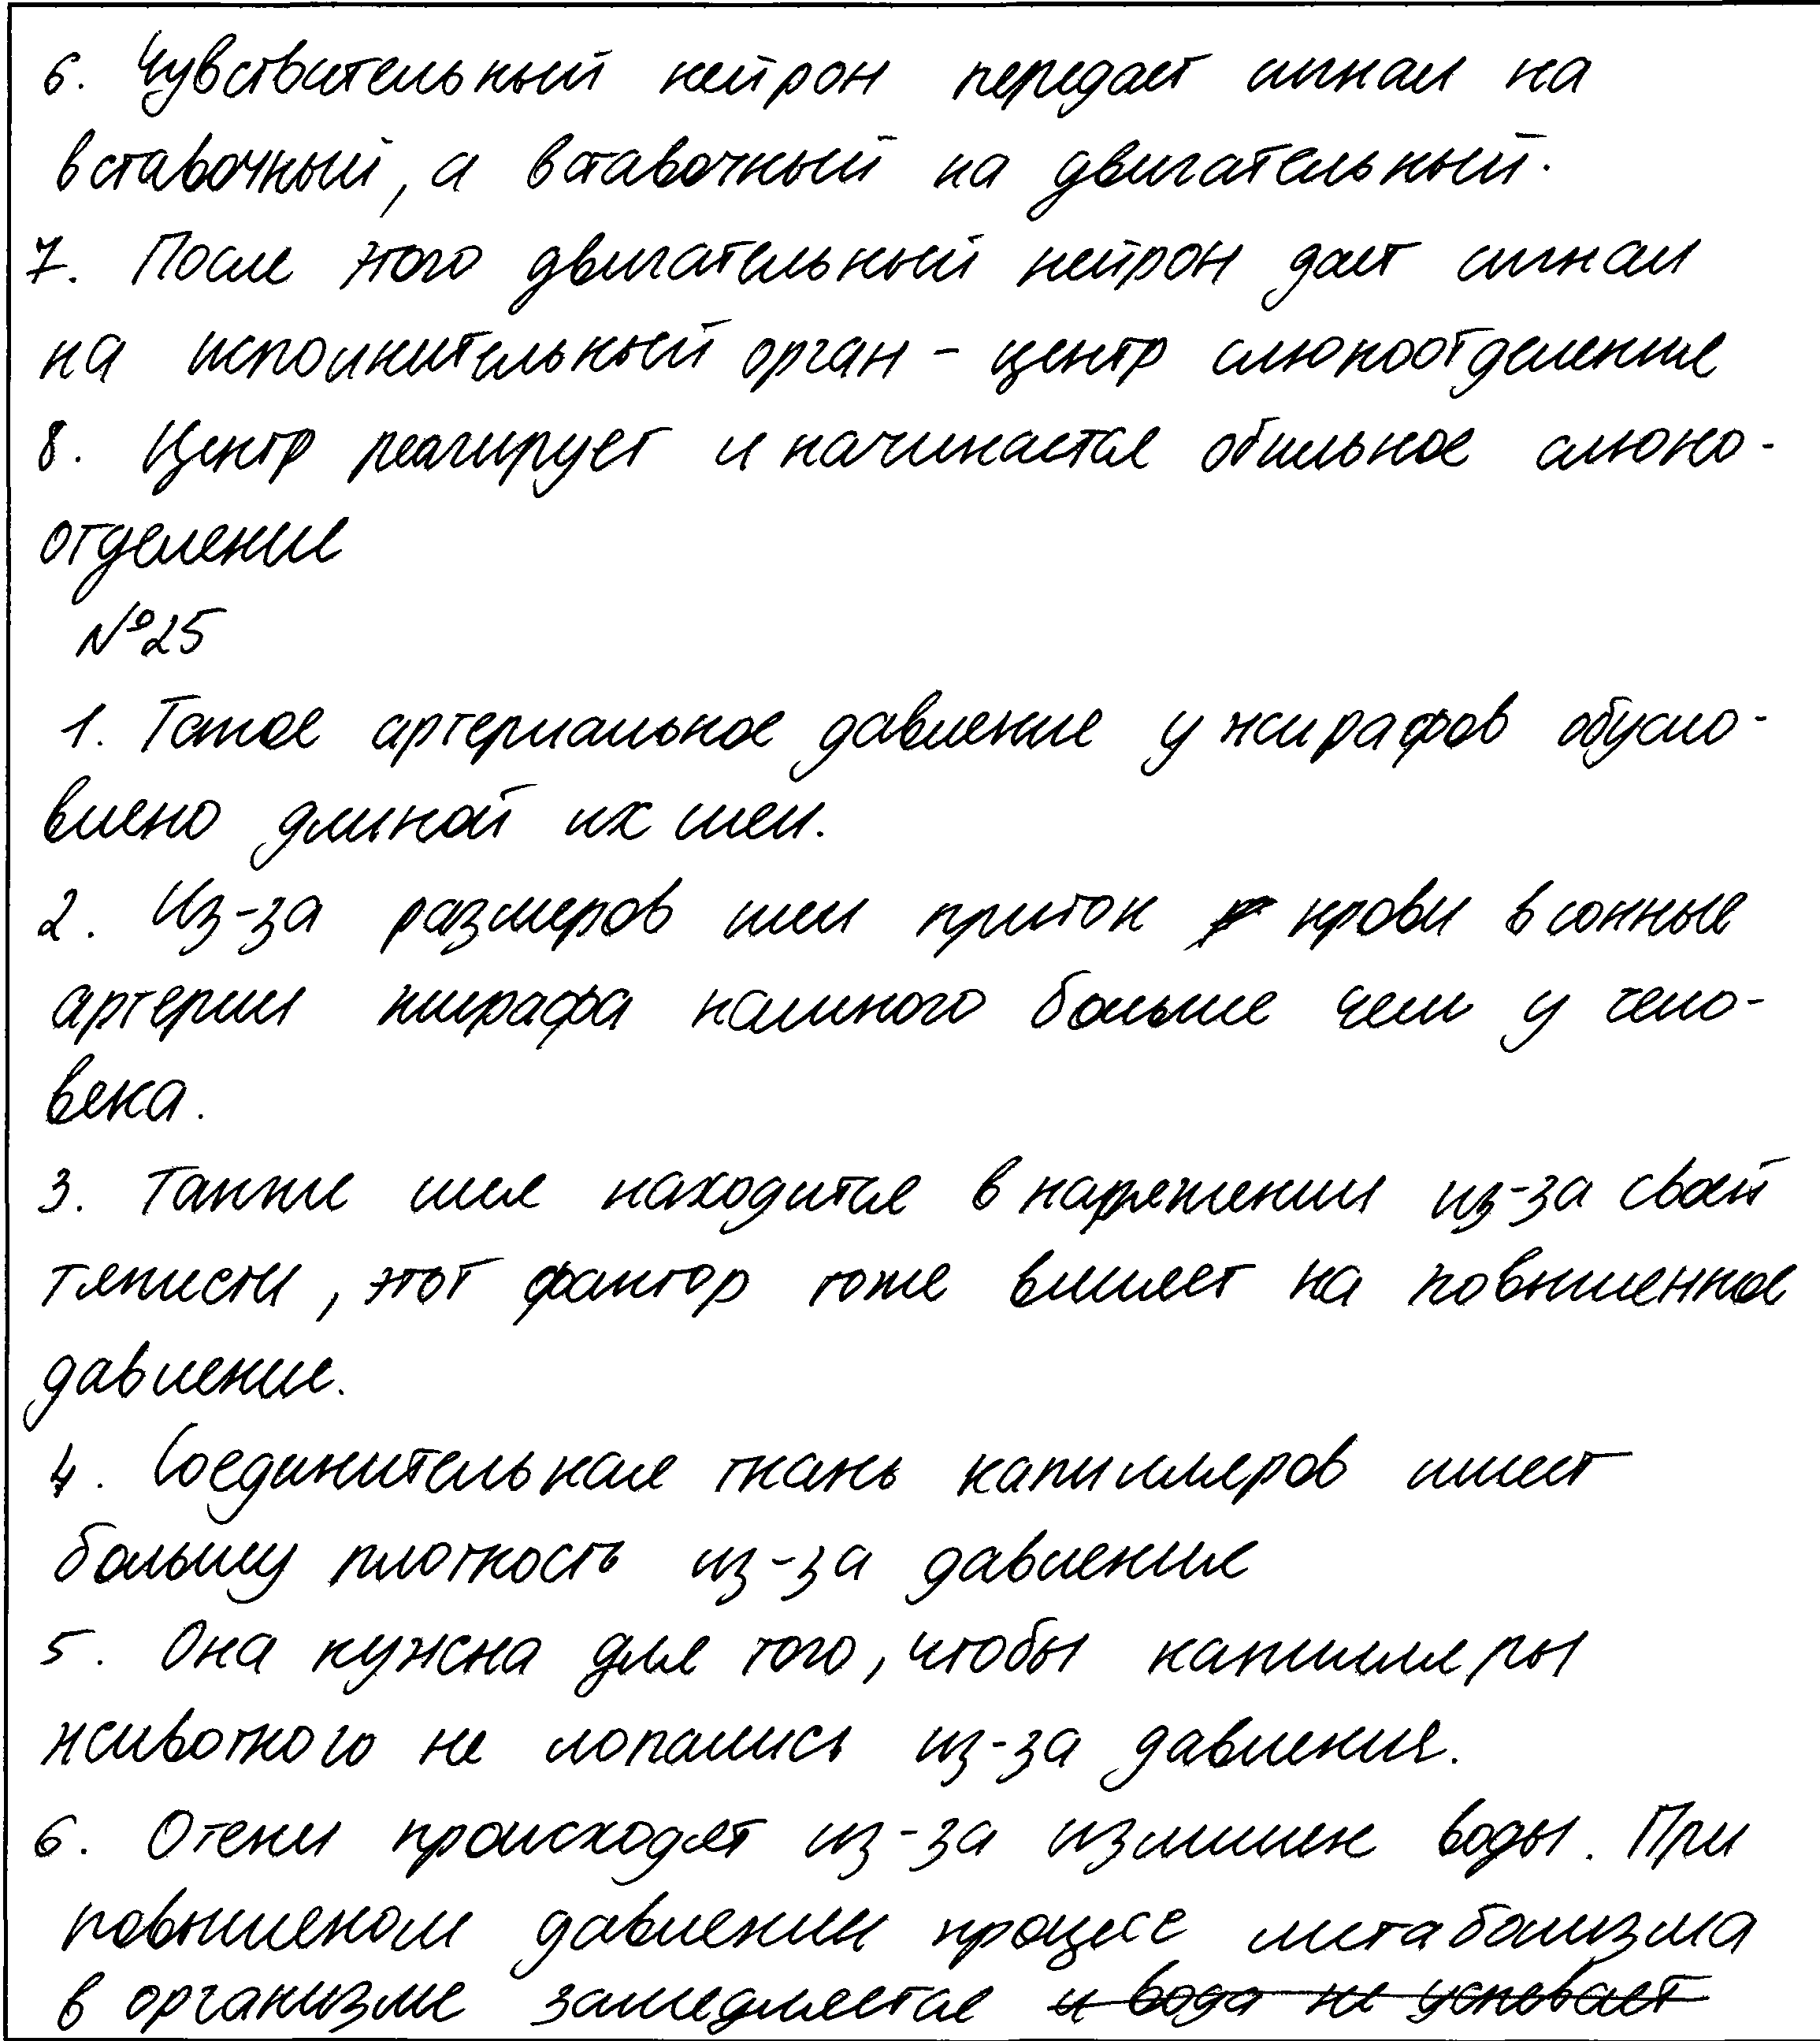 6. Чувствительный нейрон передает сигнал на
вставочный, а вставочный на двигательный.
7. После этого двигательный нейрон дает сигнал
на исполнительный орган – центр слюноотделение
8. Центр реагирует и начинается обильное слюно-
отделение
№25
1. Такое артериальное давление у жирафов обусло-
влено длиной их шеи.
2. Из-за размеров шеи приток крови в сонные
артерии жирафа намного больше чем у чело-
века.
3. Также шея находится в напряжении из-за своей
тяжести, этот фактор тоже влияет на повышенное
давление.
4. Соединительная ткань капилляров имеет
большу плотность из-за давления
5. Она нужна для того, чтобы капилляры
животного не лопались из-за давления.
6. Отеки происходят из-за излишек воды. При
повышеном давлении процесс метаболизма
в организме замедляется и вода не успевает